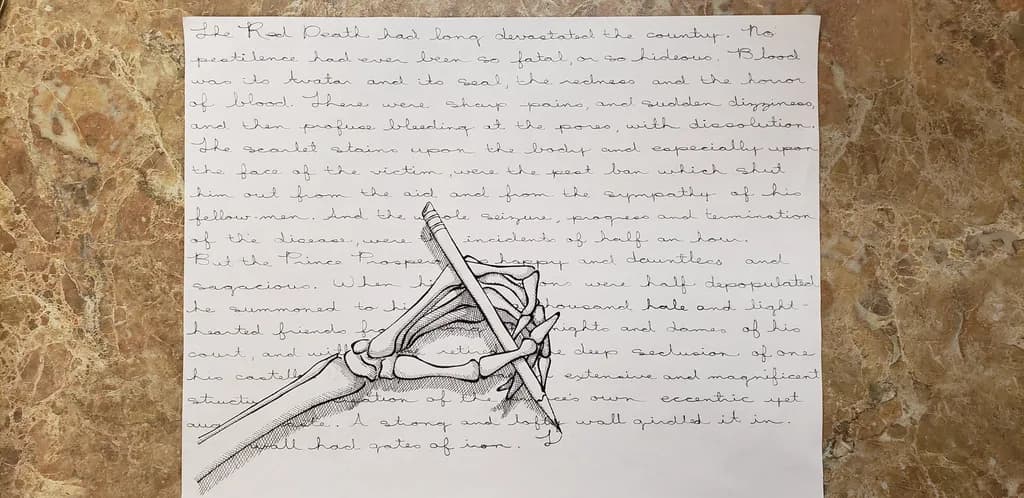 The Red Death had long devastated the country. No
pestilence had ever been so fatal, or so hideous. Blood
was its Avatar and its seal, the redness and the horror
of blood. There were sharp pains, and sudden dizziness,
and then profuse bleeding at the pores, with dissolution.
The scarlet stains upon the body and especially upon
the face of the victim, were the pest ban which shut
him out from the aid and from the sympathy of his
fellow-men. And the whole seizure, progress and termination
of the disease, were incidents of half an hour.
But the Prince Prospero happy and dauntless and
sagacious. When hi were half depopulated
he summoned to hi thousand hale and light-
hearted friends knights and dames of his
court, and with retire deep seclusion of one
his castella extensive and magnificent
structu ation of the ce's own eccentric yet
aug te. A strong and lofty wall girdled it in.
wall had gates of iron. L